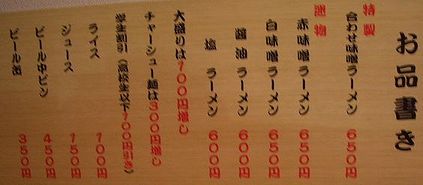 お品書き
特製
合わせ味噌ラーメン 650円
逸物
赤味噌ラーメン 650円
白味噌ラーメン 650円
醤油ラーメン 600円
塩ラーメン 600円
大盛りは100円増し
チャーシュー麺は300円増し
学生割引(高校生以下100円引き)
ライス 100円
ジュース 150円
ビール中ビン 450円
ビール缶 350円